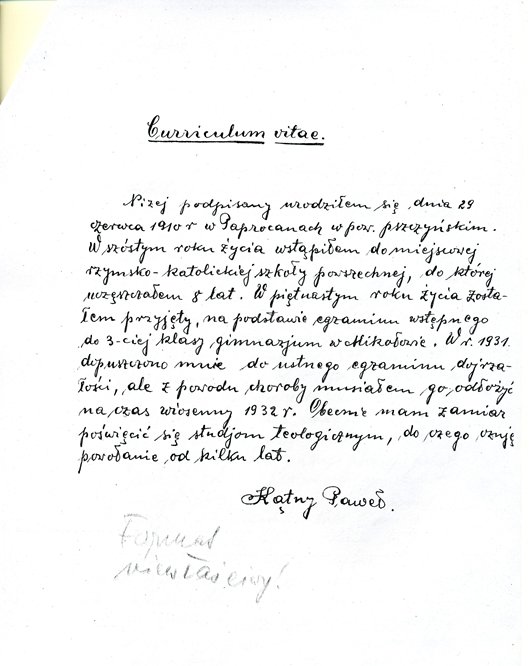 Curriculum vitae.
Niżej podpisany urodziłem się dnia 29
czerwca 1910 r w Paprocanach w pow. pszczyńskim.
W szóstym roku życia wstąpiłem do miejscowej
rzymsko-katolickiej szkoły powszechnej, do której
uczęszczałem 8 lat. W piętnastym roku życia zosta-
łem przyjęty, na podstawie egzaminu wstępnego
do 3-ciej klasy gimnazjum w Mikołowie. W r. 1931.
dopuszczono mnie do ustnego egzaminu dojrza-
łości, ale z powodu choroby musiałem go odłożyć
na czas wiosenny 1932 r. Obecnie mam zamiar
poświęcić się studjom teologicznym, do czego czuję
powołanie od kilku lat.
Kątny Paweł.
Format
niewłaściwy!